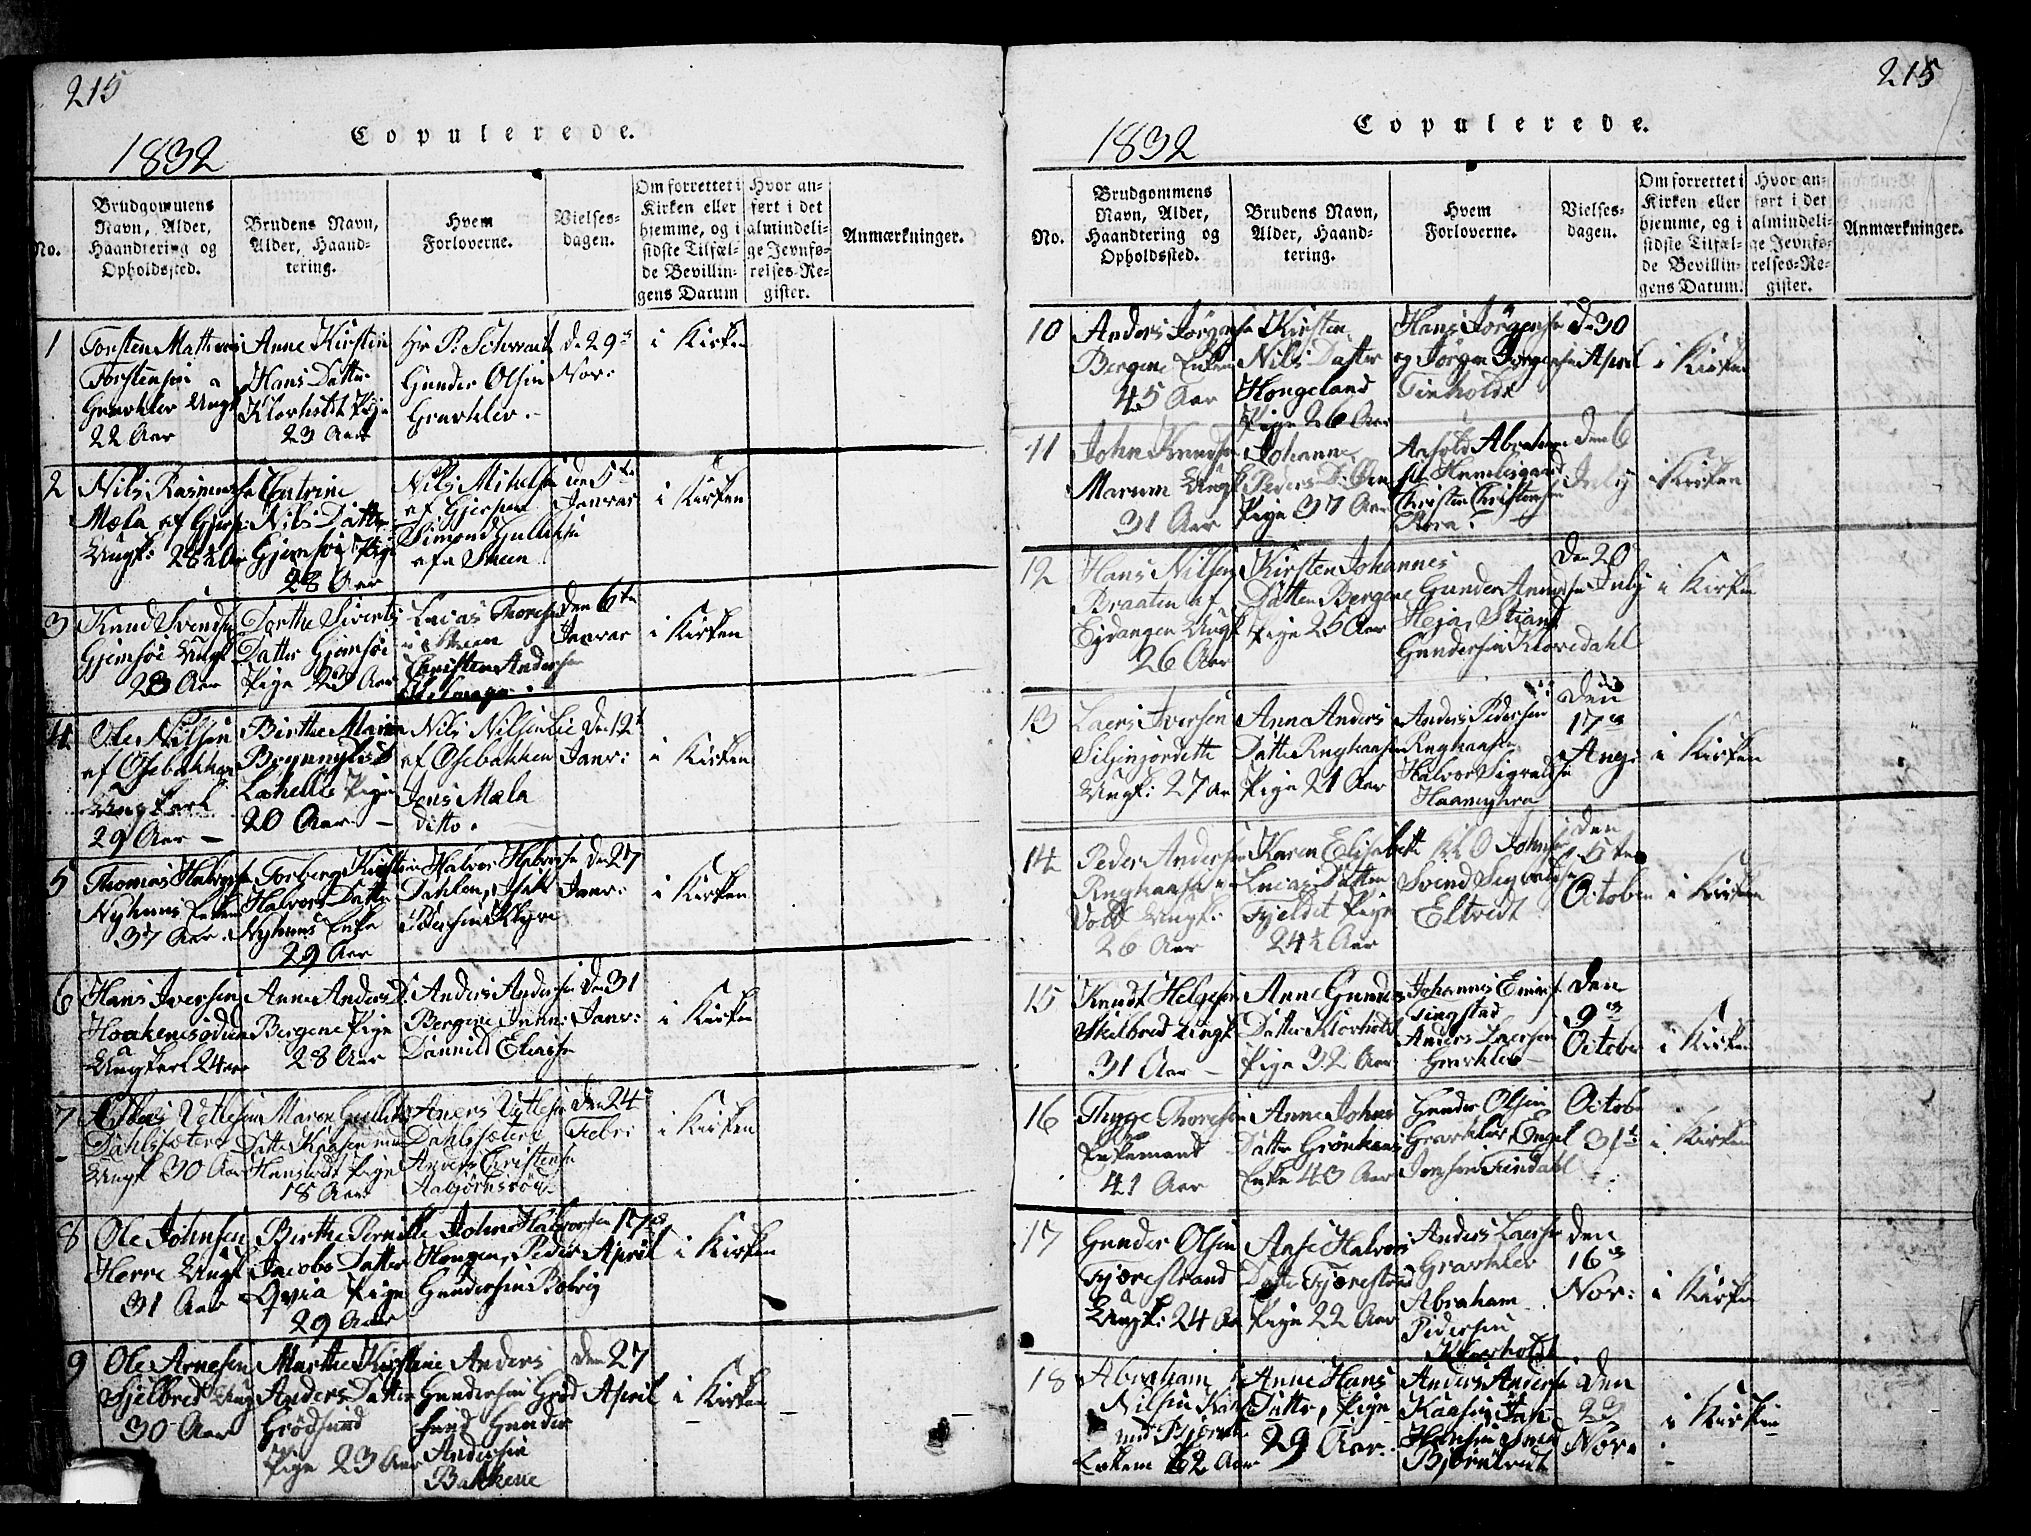 215
1832
Copulerede.
No.
Brudgommens Navn, Alder, Haandtering og Opholdssted.
Brudens Navn, Alder, Haandtering.
Hvem Forloverne.
Vielsesdagen.
Om forrettet i Kirken eller hjemme, og i sidste Tilfælde Bevillingens Datum
Hvor anført i det almindelige Jevnførelses-Register.
Anmærkninger.
1
Torsten Mathi
Torstensen
Gravklev Ungk
22 Aar
Anne Kirstin
Hans Datter
Klovholdt Pige
23 Aar
Hr P. Schwart
Gunder Olsen
Gravklev
d 29
Nov:
i Kirken
2
Nils Rasmusse
Mæla af Gjerp:
Ungk: 28 Aar
Catrine
Nils Datter
Gjemsøe Pige
28 Aar
Nils Mikelse
af Gjerpen
Simond Gulliksen
af Skeen
den 5te
Janvar
i Kirken
3
Knud Svends
Gjemsøi Ungk
28 Aar
Dorthe Siverts
Datter Gjemsøi
Pige 23 Aar
Lucas Thorese
i Skeen
Christen Anderse
den 6te
Janvar
i Kirken
4
Ole Nilsen
af Osebakken
Ungkarl
29 Aar
Birthe Maria
Brynnyld
Lahelle Pige
20 Aar
Nils Nilsen Lie
af Osebakken
Jens Mæla
ditto
Den 12t
Janr:
i Kirken
5
Thomas Halvorse
Nyhuus Enkem
37 Aar
Torberg Kirstin
Halvors Datter
Nyhuus Enke
29 Aar
Halvor Halvorse
Dahlen, Isak
den 27
Janr:
i Kirken
6
Hans Iversen
Haakenesødeen
Ungkarl 24 aar
Anne Anders D.
Bergene Pige
28 Aar
Anders Anderse
Bergene
Dannild Eliasse
Den 31
Janr:
i Kirken
7
Vetlesen
Dahlsætere
Ungk 30 Aar
Maren Gulliks
Datter
Pige
18 Aar
Anders Vetlese
Dahlsætere
Anders Christense
Aabjørnsrød
Den 24
Febr:
i Kirken
8
Ole Johnsen
Herre Ungk
31 Aar
Birthe Pernille
Jacobs Datter
Qvia Pige
29 Aar
John Halvorsen
Hougen, Peder
Gundersen Bolvig
17
April
i Kirken
9
Ole Arnesen
Sjelbred Ung
30 Aar
Marthe Kirstine
Anders Datter
Grødsund
Pige 23 Aar
Anders
Gundersen Grød
sund Gunder
Andersen
Bakkene
den 27
April
i Kirken
215
1832
Copulerede.
No.
Brudgommens Navn, Alder, Haandtering og Opholdssted.
Brudens Navn, Alder, Haandtering.
Hvem Forloverne.
Vielsesdagen.
Om forrettet i Kirken eller hjemme, og i sidste Tilfælde Bevillingens Datum.
Hvor anført i det almindelige Jevnførelses-Register.
Anmærkninger.
10
Anders Jørgense
Bergene Enkem
45 Aar
Kirsten
Nils Datter
Hongeland
Pige 26 Aar
Hans Jørgense
og Jørgen Jørgensen
Tinholdt
d 30
April
i Kirken
11
John Knudse
Marum Ungk
31 Aar
Johanne
Peders D
Pige 37 Aar
Aasold Abraham
sen
Christen Christensen
den 6
July
i Kirken
12
Hans Nilsen
Braaten af
Ejdangen Ungk
26 Aar
Kirsten Johannes
Datter Bergene
Pige 25 Aar
Gunder
Heja, Stian
Gundersen Klovedahl
Den 20
July
i Kirken
13
Laers Iversen
Siljinjordette
Ungk: 27 Aar
Anna Anders
Datter Rughaasen
Pige 21 Aar
Anders Pedersen
Rughaasen
Halvor Sigvaldse
Haamyhren
Den
17
Aug:
i Kirken
14
Peder Anderse
Rughaasen
Vold Ungk:
26 Aar
Karen Elisabeth
Lucas Datter
Fjeldet Pige
24½ Aar
Johnse
Svend Sigvaldse
Eltvedt
den
5te
October
i Kirken
15
Knudt Helgesen
Skilbred Ungk
31 Aar
Anne Gunders
Datter Klovholdt
Pige 32 Aar
Johannes
Tingstad
Anders Laersen
Gravklev
Den
9
October
i Kirken
16
Tygge Thoresen
Enkemand
41 Aar
Anne Johns
Datter Grønkaas
Enke 43 Aar
Gunder Olsen
Gravklev, Engel
Jonsen Findahl
Octob
31t
i Kirken
17
Gunder Olsen
Fjærestrand
Ungk: 24 Aar
Aase Halvors
Datter Fjærestrand
Pige 22 Aar
Anders Laerse
Gravklev
Abraham
Pedersen
Klovholdt
den
16
Nov:
i Kirken
18
Abraham
Nilsen
Enkem 62 Aar
Anne Hans
Datter, Pige
29 Aar
Anders Anderse
Kaasen, Jan
Hansen
Bjørntvedt
Den
23
Nov
i Kirken